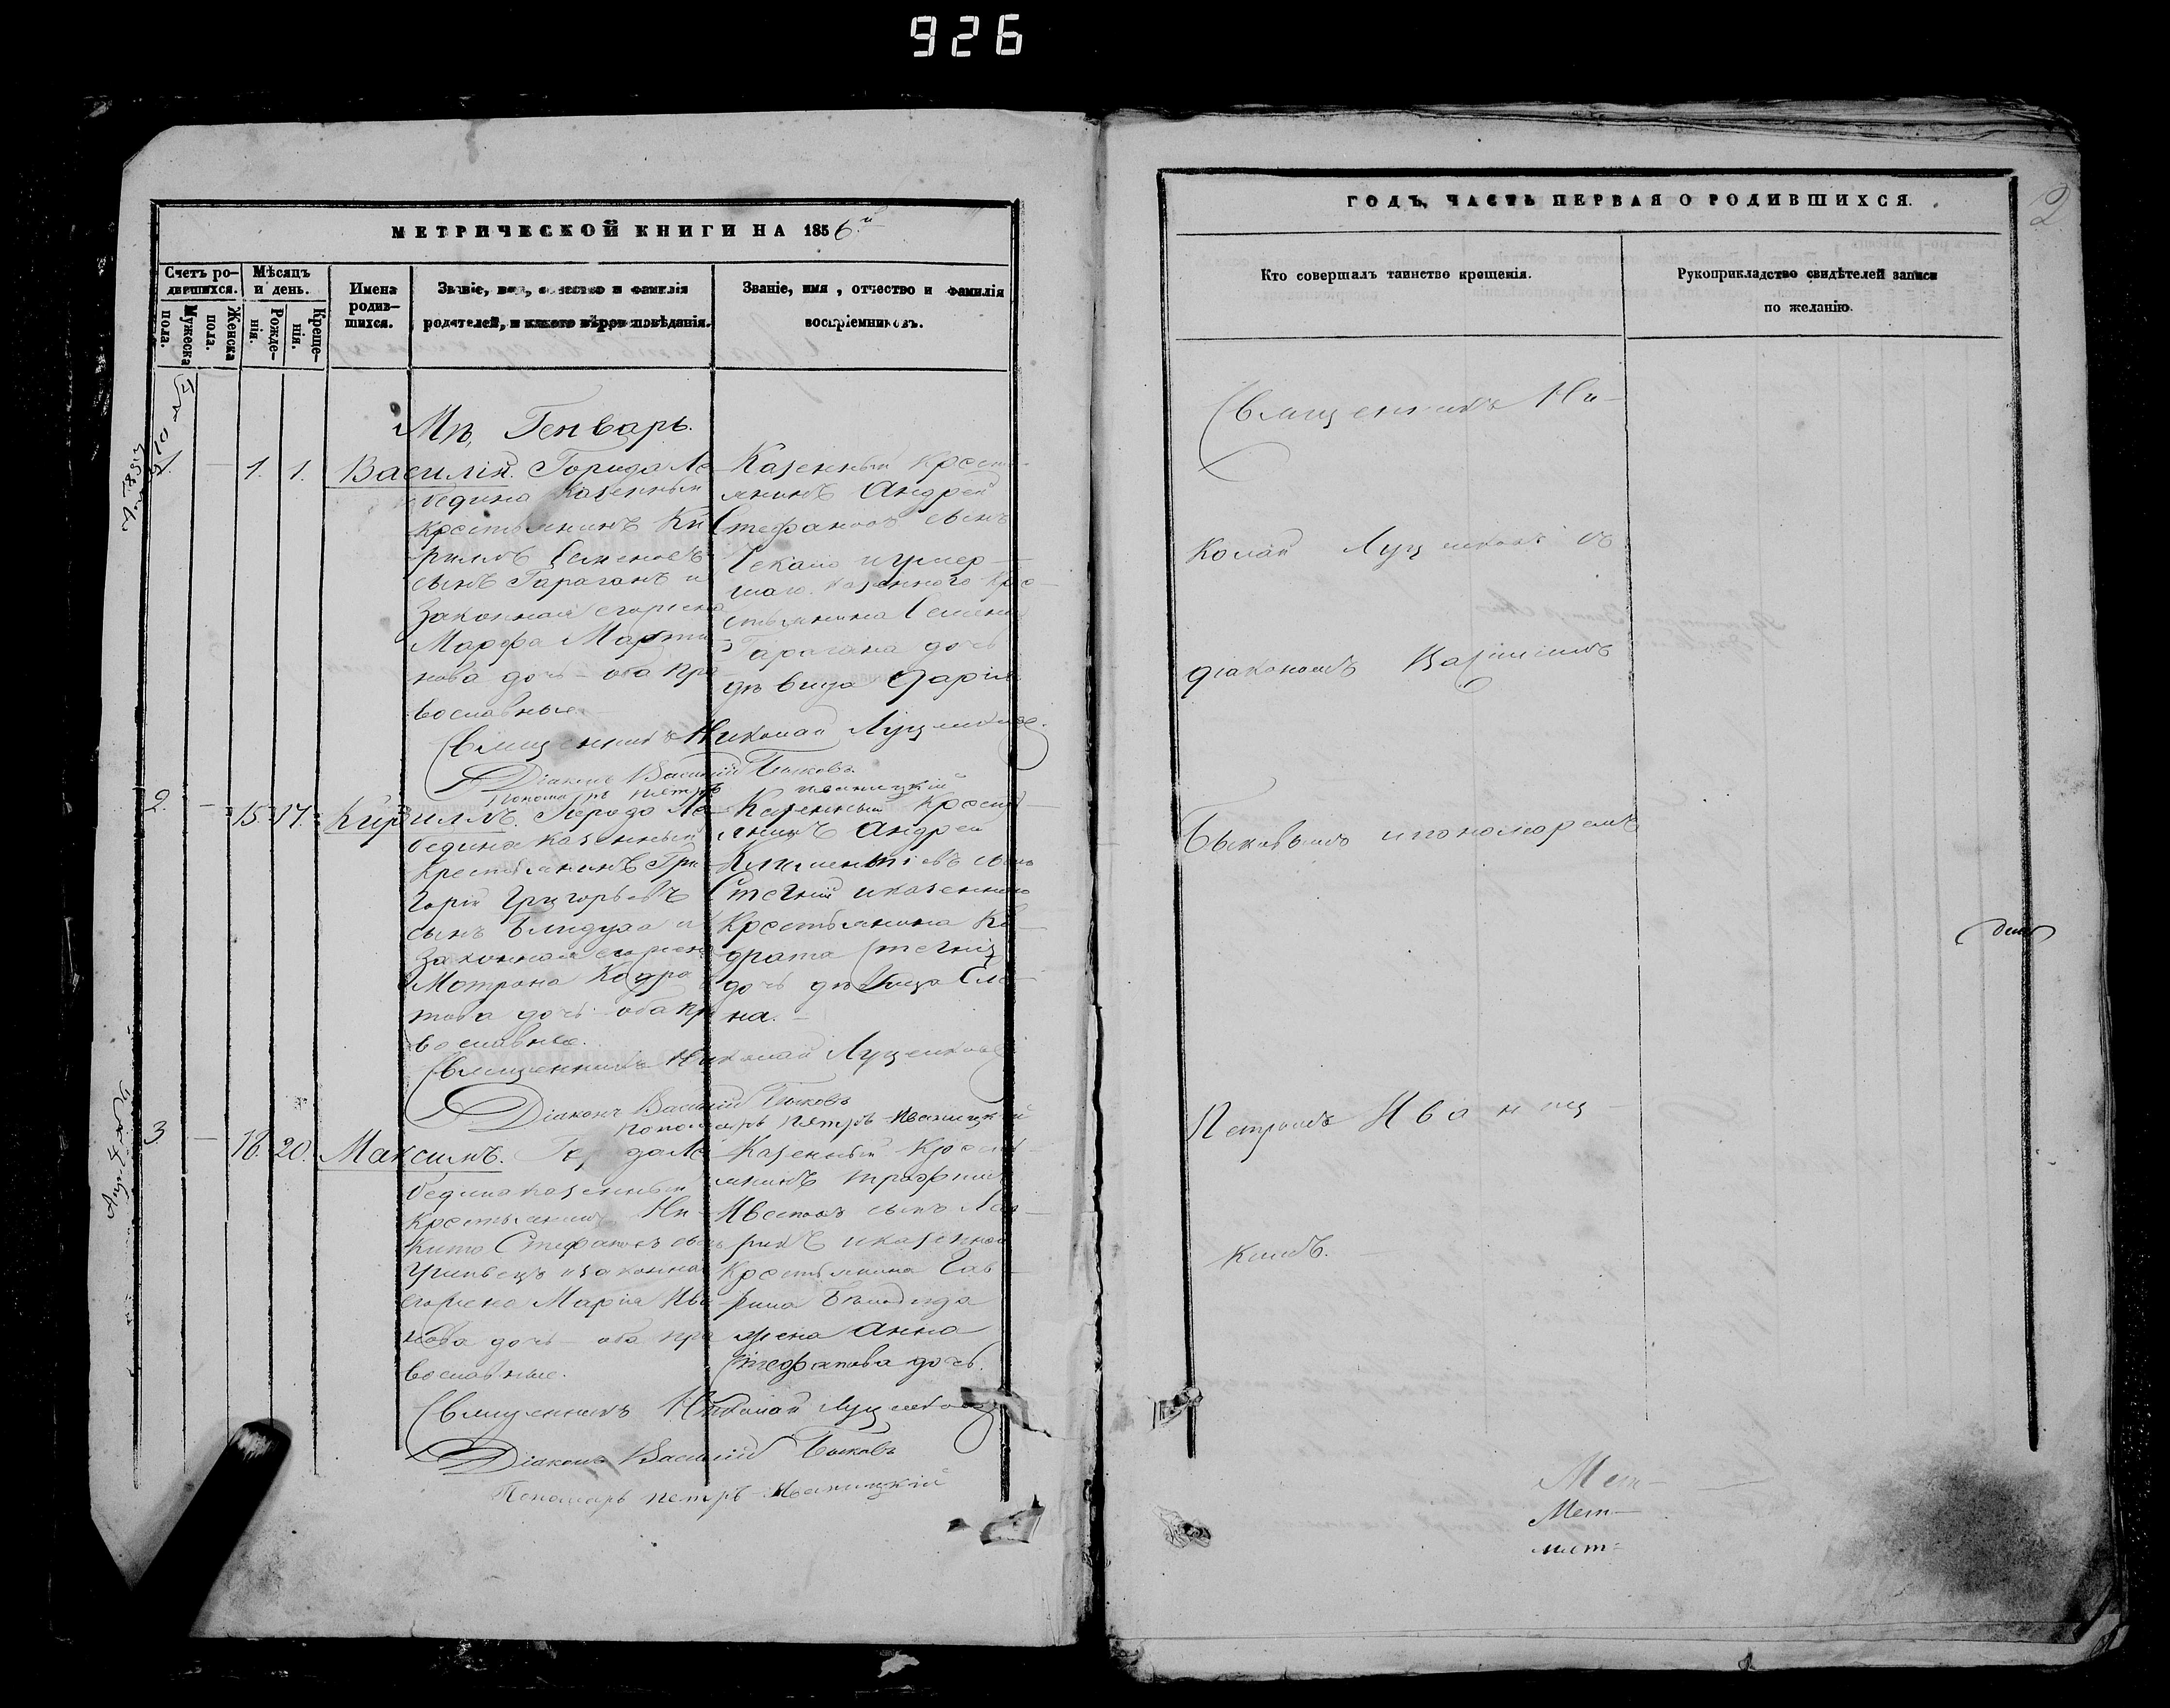 926
МЕТРИЧЕСКОЙ КНИГИ НА 1856й
Счетъ родившихся.
Мѣсяцъ и день.
Мужеска пола.
Женска пола.
Рожденія.
Крещенія.
Имена родившихся.
Званіе, имя, отчество и фамилія
родителей, и какого вѣроисповѣданія.
Званіе, имя, отчество и фамилія
воспріемниковъ.
Мц. Генварь.
1. – 1. 1. Василій.
Города Ле
бедина Казенный
крестьянинъ Ки
риллъ Семеновъ
сынъ Гараганъ и
законная егоржена
Марфа Марти
нова дочь – оба пра
вославные
Казенный кресть
янинъ Андрей
Стефановъ сынъ
умер
шаго казенного кре
стьянина Семена
Гарагана дочь
дѣвица Дарія
Священникъ Николай Луценковъ.
Діаконъ Василій Быковъ
Пономарь Петръ Иваницкій
2. – 15. 17. Кириллъ.
Города Ле
бедина казенный
крестьянинъ Гри
горій Григорьевъ
сынъ и
законная егоржена
Мотрона Кодра
това дочь оба пра
вославные.
Казенный кресть
янинъ Андрей
Климентіевъ сынъ
Стегній иказенного
крестьянина Ко
драта Стегнія
дочь дѣвица Еле
на.
Священникъ Николай Луценковъ
Діаконъ Василій Быковъ
пономарь Петръ Иваницкій
3 – 18. 20. Максимъ.
Города Ле
бедина казенный
крестьянинъ Ни
кита Стефановъ сынъ
изаконная
егоржена Марія Ива
нова дочь – оба пра
вославные.
Казенный кресть
янинъ Трофимъ
сынъ
иказенного
крестьянина Гав
рила
жена Анна
Стефанова дочь.
Священникъ Николай Луценковъ
Діаконъ Василій Быковъ
Пономарь Петръ Иваницкій
ГОДЪ, ЧАСТЬ ПЕРВАЯ О РОДИВШИХСЯ.
2
Кто совершалъ таинство крещенія.
Рукоприкладство свидѣтелей записи
по желанію.
Священникъ Ни-
колай Луценковъ съ
діакономъ Василіемъ
Быковымъ ипономаремъ
Петромъ Иваниц-
кимъ.
Мет-
Мет-
мет-